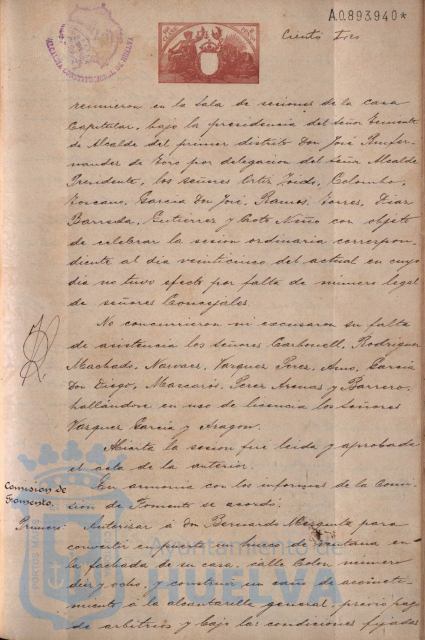 A.0.893,940*
Ciento tres
ALCALDIA CONSTITUCIONAL DE HUELVA
reunieron en la Sala de sesiones de la casa
Capitular, bajo la presidencia del Señor Teniente
de Alcalde del primer distrito Don José
de Toro por delegacion del Señor Alcalde
Presidente, los señores Ortiz, Colombo,
Toscano, Garcia Don José, Ramos, Torres, Diaz
Barreda, Gutierrez y Coto Niño con objeto
de celebrar la sesion ordinaria correspon-
diente al dia veinticinco del actual en cuyo
dia no tuvo efecto por falta de numero legal
de señores Concejales.
No concurrieron ni excusaron su falta
de asistencia los señores Carbonell, Rodriguez
Machado, Narvaez, Vazquez Perez, Garcia
Don Diego, Mascarós, Perez Arenas y Barrero,
hallándose en uso de licencia los Señores
Vazquez Garcia y Aragon.
Abierta la sesion fué leida y aprobada
el acta de la anterior.
Comision de
Fomento.
En armonia con los informes de la Comi-
sión de Fomento se acordó:
Primero: Autorizar á don Bernardo Mezquita para
convertir en puerta un hueco de ventana en
la fachada de su casa, calle Colon numero
diez y ocho, y construir un caño de acometi-
miento á la alcantarilla general, previo pago
de arbitrios y bajo las condiciones fijadas
Ayuntamiento de
HUELVA